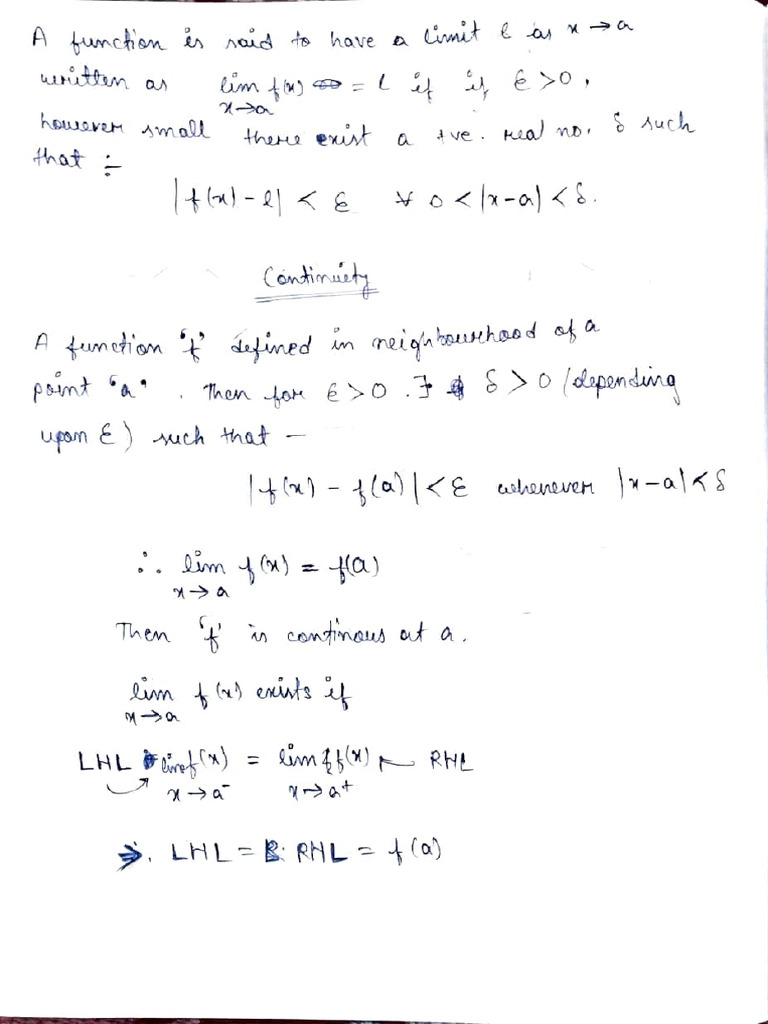 A function is said to have a limit l as x → a
written as lim f(x) = l if if ε > 0,
x→a
however small there exist a +ve. real no. δ such
that :-
|f(x) - l| < ε ∀ 0 < |x-a| < δ.
Continuiety
A function 'f' defined in neighbourhood of a
point 'a'. Then for ε > 0 . ∃ δ > 0 (depending
upon ε) such that —
|f(x) - f(a)| < ε whenever |x-a| < δ
∴ lim f(x) = f(a)
x → a
Then 'f' is continous at a.
lim f(x) exists if
x→a
LHL lim f(x) = lim f(x) ← RHL
x→a⁻ x→a⁺
⇒. LHL = RHL = f(a)